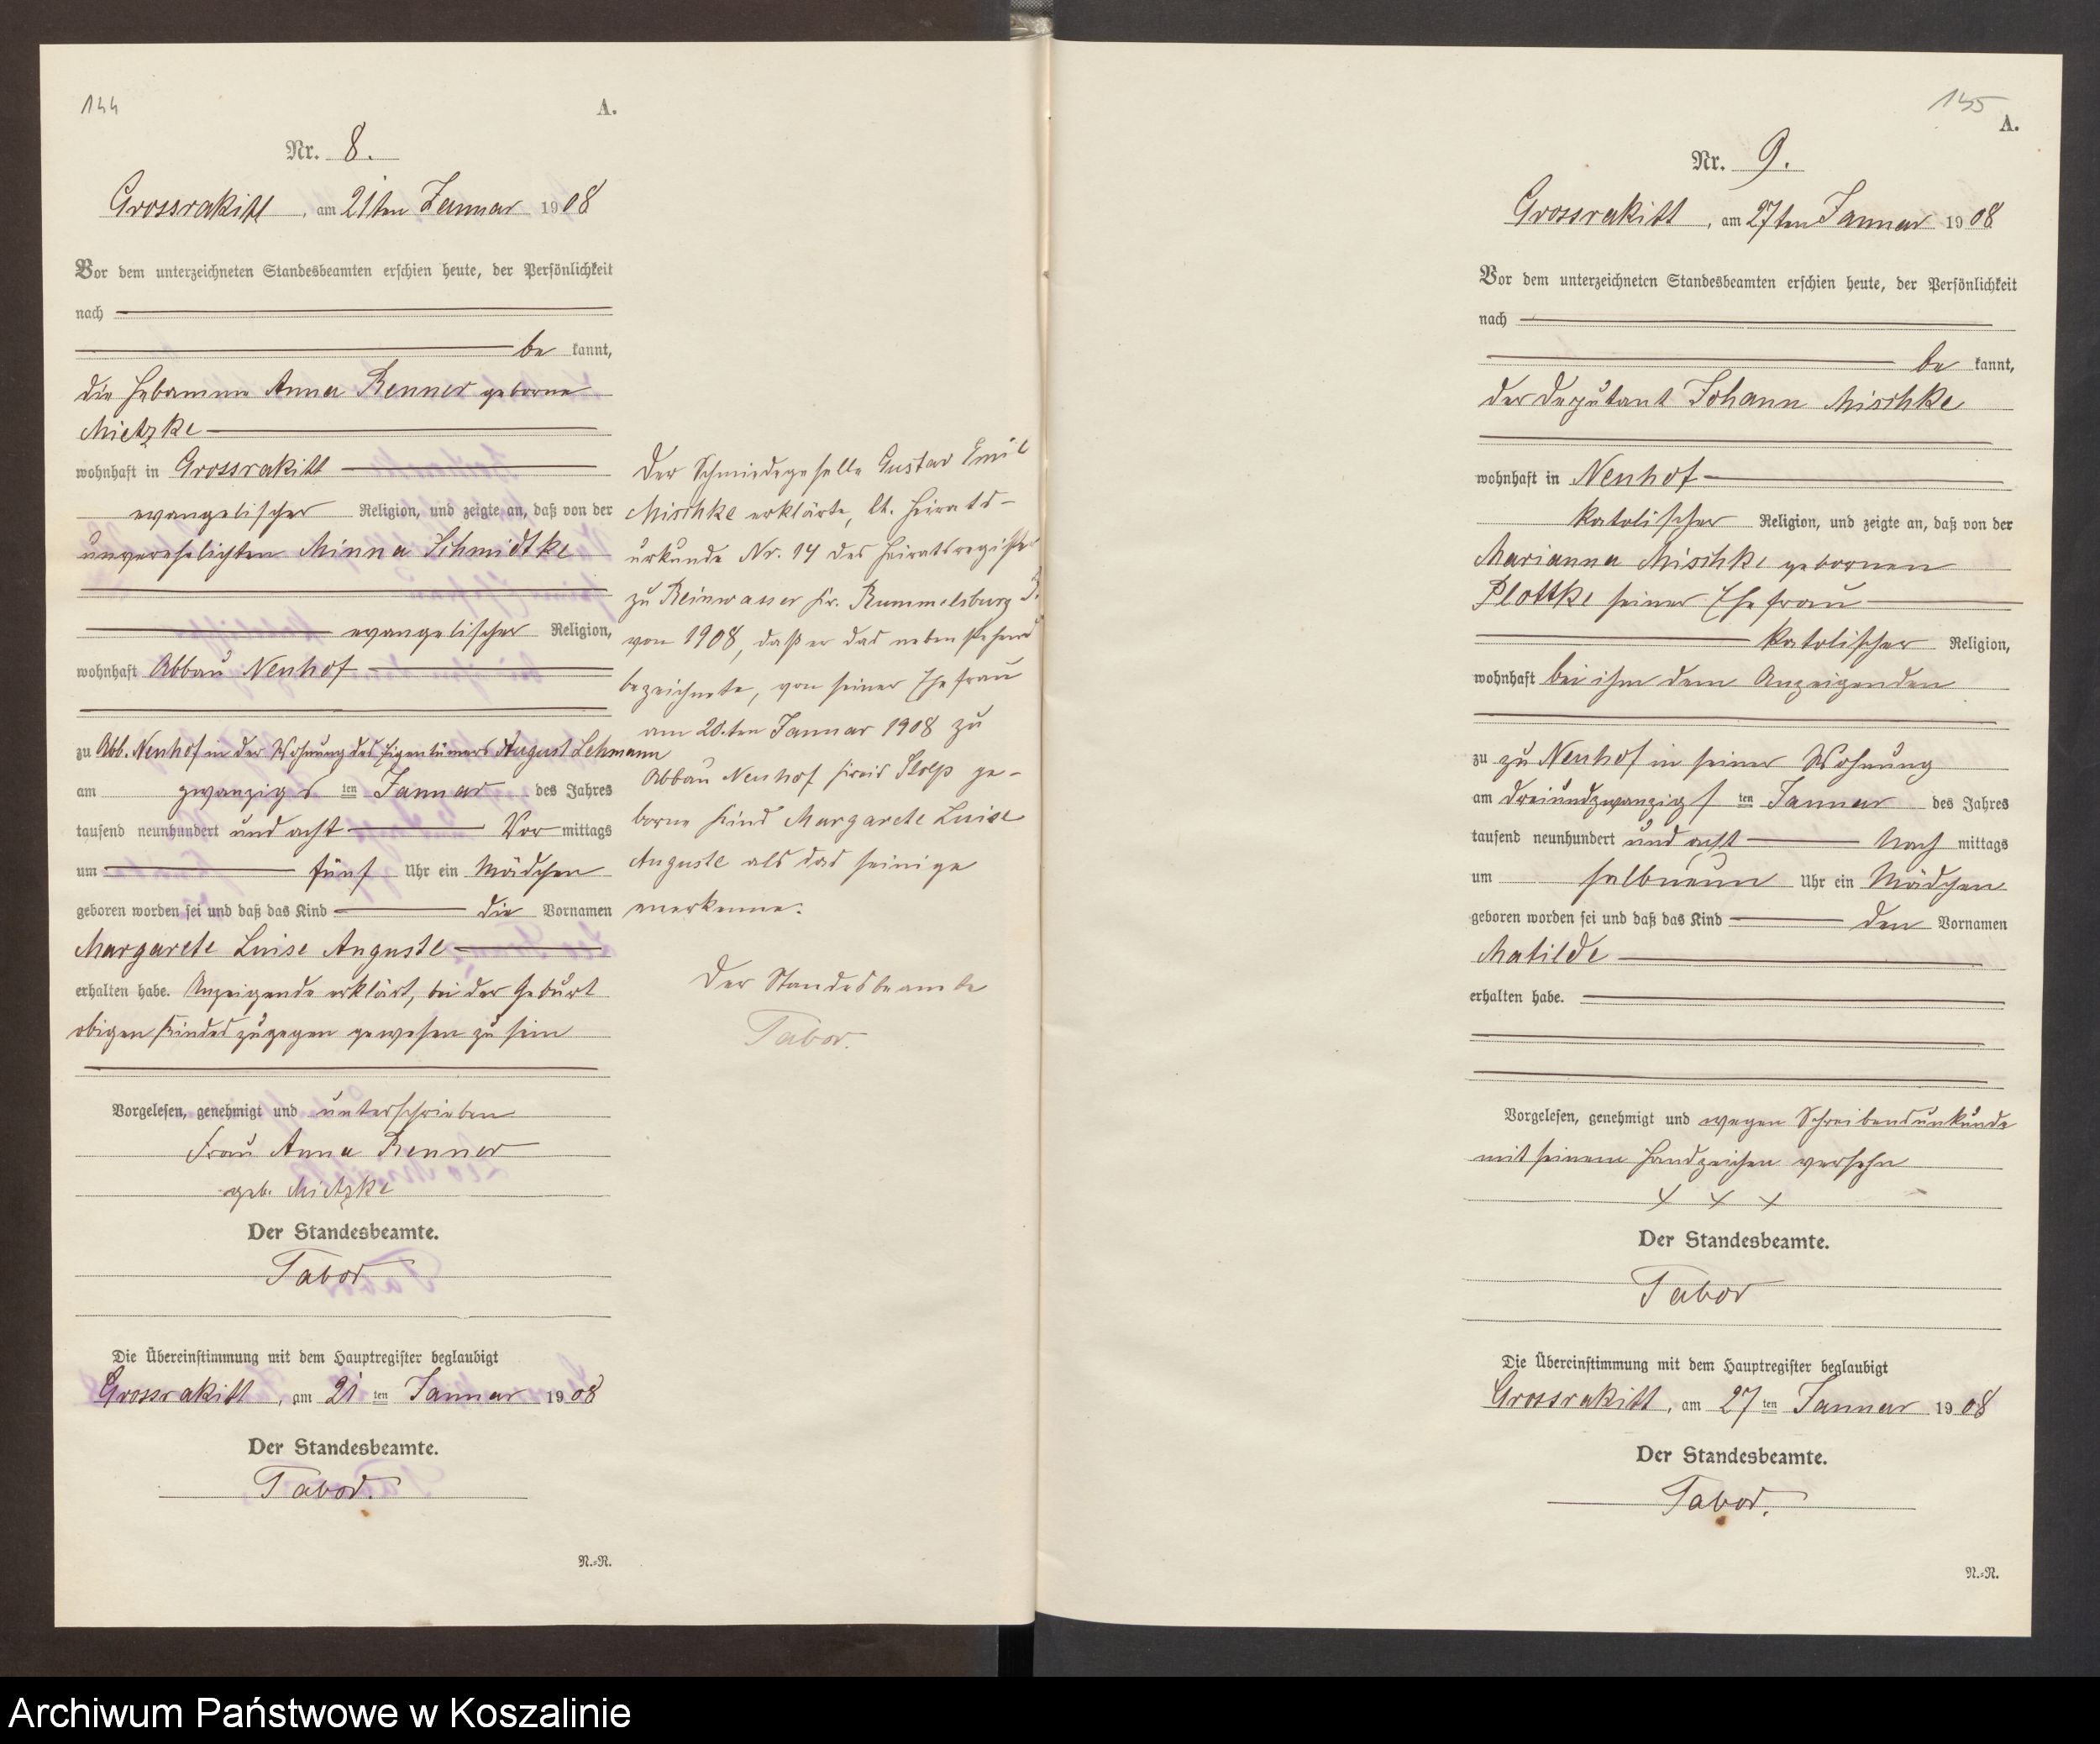 144
A.
Nr. 8.
Grossrakitt, am 21ten Januar 1908
Vor dem unterzeichneten Standesbeamten erschien heute, der Persönlichkeit
nach
be kannt,
die Hebamme Anna Renner geborne
Mietzke
wohnhaft in Grossrakitt
evangelischer Religion, und zeigte an, daß von der
unverehelichten Minna Schmidtke
evangelischer Religion,
wohnhaft Abbau Neuhof
zu Abb. Neuhof in der Wohnung des Eigentümers August Lehmann
am zwanzigs ten Januar des Jahres
tausend neunhundert und acht Vor mittags
um fünf Uhr ein Mädchen
geboren worden sei und daß das Kind die Vornamen
Margarete Luise Auguste
erhalten habe. Anzeigende erklärt, bei der Geburt
obigen Kindes zugegen gewesen zu sein
Vorgelesen, genehmigt und unterschrieben
Frau Anna Renner
geb. Mietzke
Der Standesbeamte.
Tabor
Die Übereinstimmung mit dem Hauptregister beglaubigt
Grossrakitt, am 21 ten Januar 1908
Der Standesbeamte.
Tabor.
N.=R.
Der Schmiedegeselle Gustav Emil
Mischke erklärte, lt. Heirats-
urkunde Nr. 14 des Heiratsregister
zu Reinwasser Kr. Rummelsburg
von 1908, daß er das nebenstehend
bezeichnete, von seiner Ehefrau
am 20.ten Januar 1908 zu
Abbau Neuhof Kreis Stolp ge-
borne Kind Margarete Luise
Auguste als das seinige
anerkenne.
Der Standesbeamte
Tabor.
145
A.
Nr. 9.
Grossrakitt, am 27ten Januar 1908
Vor dem unterzeichneten Standesbeamten erschien heute, der Persönlichkeit
nach
be kannt,
der Deputant Johann Mischke
wohnhaft in Neuhof
katolischer Religion, und zeigte an, daß von der
Marianna Mischke gebornen
Plottke seiner Ehefrau
katolischer Religion,
wohnhaft bei ihm dem Anzeigenden
zu zu Neuhof in seiner Wohnung
am dreiundzwanzigs ten Januar des Jahres
tausend neunhundert und acht Nach mittags
um halbneun Uhr ein Mädchen
geboren worden sei und daß das Kind den Vornamen
Matilde
erhalten habe.
Vorgelesen, genehmigt und wegen Schreibensunkunde
mit seinem Handzeichen versehn
x x x
Der Standesbeamte.
Tabor
Die Übereinstimmung mit dem Hauptregister beglaubigt
Grossrakitt, am 27 ten Januar 1908
Der Standesbeamte.
Tabor.
N.=R.
Archiwum Państwowe w Koszalinie